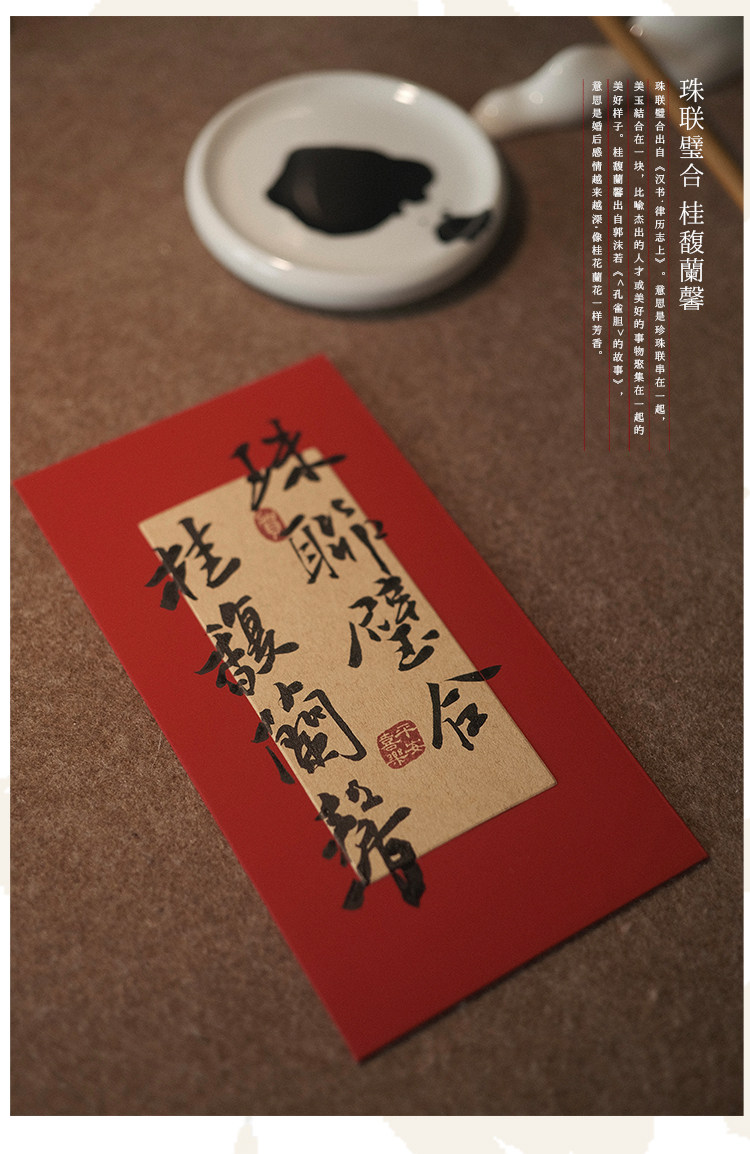 珠联璧合 桂馥蘭馨
珠联璧合出自《汉书·律历志上》。意思是珍珠联串在一起，
美玉結合在一块，比喻杰出的人才或美好的事物聚集在一起的
美好样子。桂馥蘭馨出自郭沫若《<孔雀胆>的故事》，
意思是婚后感情越来越深，像桂花蘭花一样芳香。
珠聯璧合
桂馥蘭馨
平安
喜樂